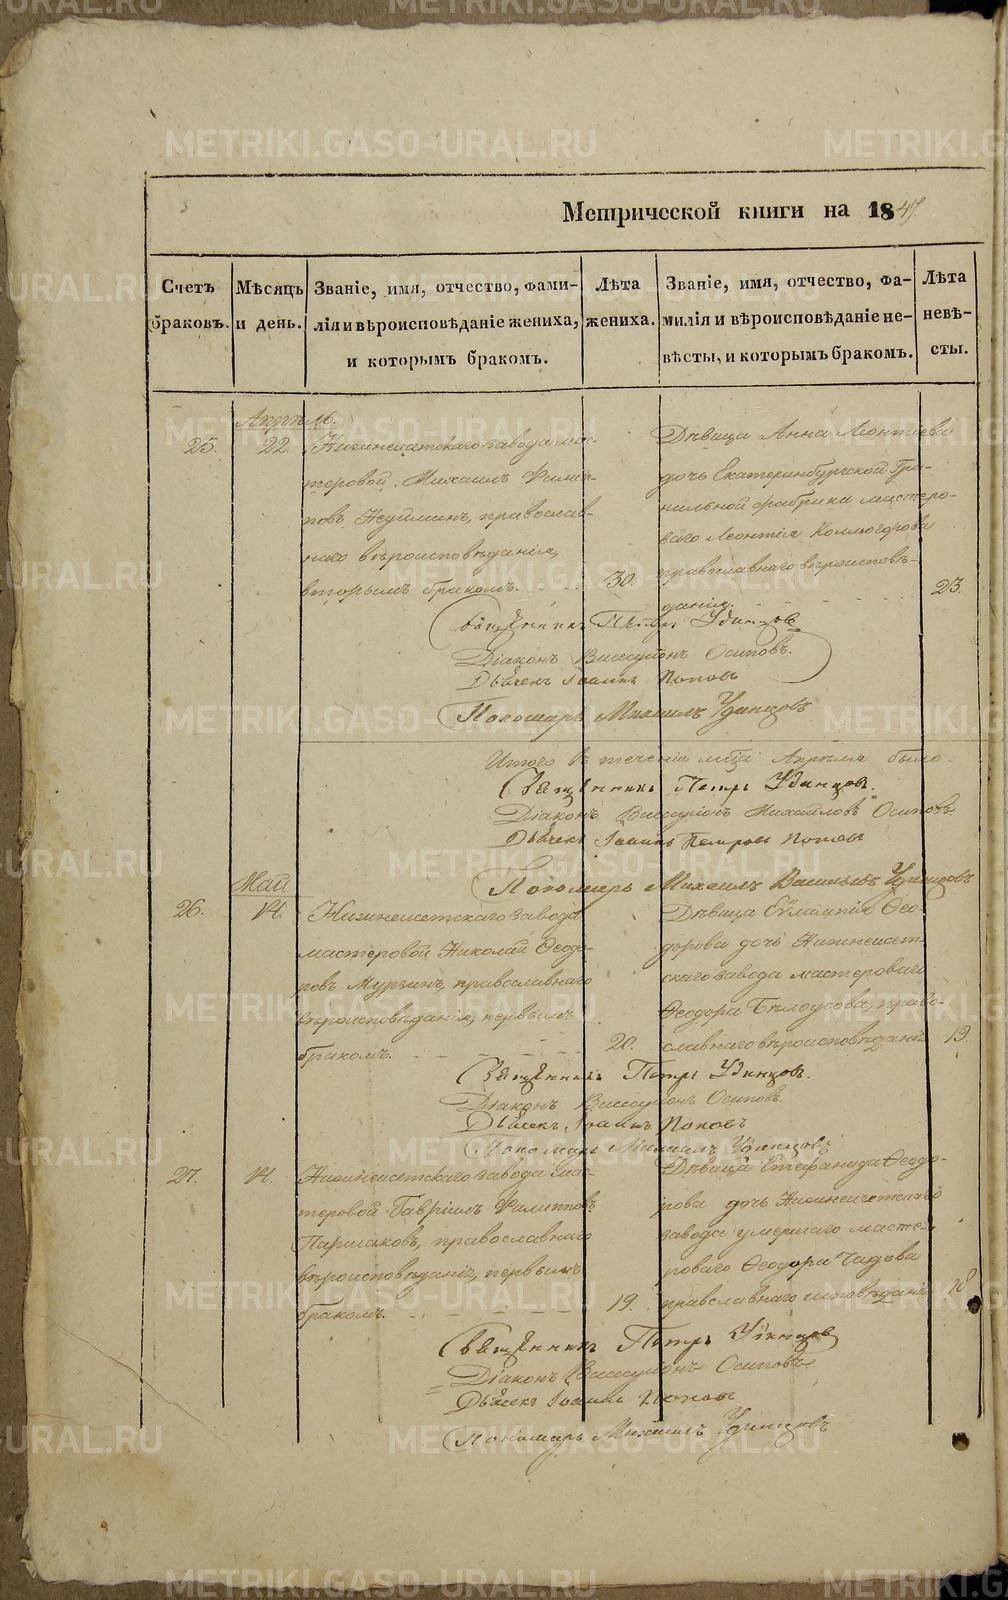 METRIKI.GASO-URAL.RU
Метрической книги на 1847.
Счетъ браковъ.
Мѣсяцъ и день.
Званіе, имя, отчество, фами-
лія и вѣроисповѣданіе жениха,
и которымъ бракомъ.
Лѣта жениха.
Званіе, имя, отчество, фа-
милія и вѣроисповѣданіе не-
вѣсты, и которымъ бракомъ.
Лѣта невѣ-
сты.
Апрѣль.
25. 22.
Нижнеисетскаго завода мас-
теровой Михаилъ Филип-
повъ Неуймин, православ-
наго вѣроисповѣданія,
вторымъ бракомъ. 30.
Дѣвица Анна Леонтіева
дочь Екатеринбургской Гра-
нильной фабрики мастеро-
ваго Леонтія Колмогорова
православнаго вѣроисповѣ-
данія. 23.
Священникъ Петръ Удинцовъ
Діаконъ Виссаріонъ Осиповъ.
Дьячекъ Іоаннъ Поповъ
Пономарь Михаилъ Удинцовъ
Итого въ теченіи мѣсяца Апрѣля было
Священникъ Петръ Удинцовъ.
Діаконъ Виссаріонъ Михайловъ Осиповъ.
Дьячекъ Іоаннъ Петровъ Поповъ
Пономарь Михаилъ Васильевъ Удинцовъ
Май
26. 14.
Нижнеисетскаго завода
мастеровой Николай Ѳеодо-
ровъ Мурзинъ, православнаго
вѣроисповѣданія, первымъ
бракомъ. 20.
Дѣвица Евлампія Ѳео-
дорова дочь Нижнеисет-
скаго завода мастероваго
Ѳеодора Бѣлоусова, право-
славнаго вѣроисповѣданія 19.
Священникъ Петръ Удинцовъ.
Діаконъ Виссаріонъ Осиповъ.
Дьячекъ Іоаннъ Поповъ
Пономарь Михаилъ Удинцовъ
27. 14.
Нижнеисетскаго завода мас-
теровой Гавріилъ Филипповъ
православнаго
вѣроисповѣданія, первымъ
бракомъ. 19.
Дѣвица Стефанида Ѳеодо-
рова дочь Нижнеисетскаго
завода умершаго масте-
роваго Ѳеодора
православнаго исповѣданія 18
Священникъ Петръ Удинцовъ
Діаконъ Виссаріонъ Осиповъ.
Дьячекъ Іоаннъ Поповъ
Пономарь Михаилъ Удинцовъ